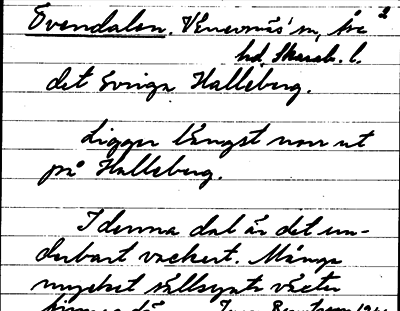 Svendalen. Vänersnäs sn, Åse 2
hd, Skarab. l.
det övriga Halleberg.
Ligger längst norr ut
på Halleberg.
I denna dal är det un-
derbart vackert. Många
mycket sällsynta växter
finnes där.